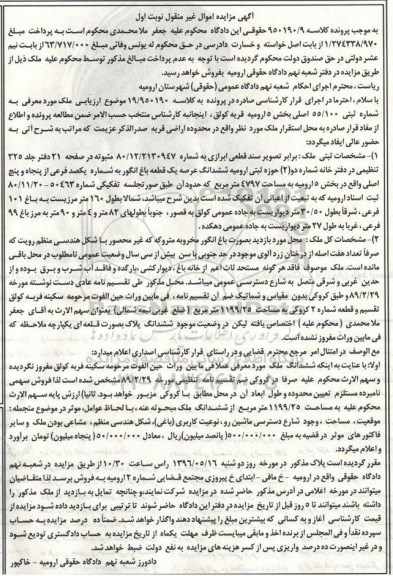 آگهی مزایده اموال غیر منقول نوبت اول
به موجب پرونده کلاسه ۹۵۰۱۹۰/۹ حقوقی این دادگاه محکوم علیه جعفر ملامحمدی محکوم است به پرداخت مبلغ
۱/۲۷۴۳۳۸/۹۷۰ از بابت اصل خواسته و خسارت دادرسی در حق محکوم له یونس وفائی مبلغ ۶۳/۷۱۷/۰۰۰ از بابت نیم
عشر دولتی در حق صندوق دولت محکوم گردیده است با توجه به عدم پرداخت مبالغ مذکور توسط محکوم علیه ملک ذیل از
طریق مزایده در دفتر شعبه نهم دادگاه حقوقی ارومیه بفروش خواهد رسید.
ریاست محترم اجرای احکام شعبه نهم دادگاه عمومی (حقوقی) شهرستان ارومیه
با سلام، احتراما در اجرای قرار کارشناسی صادره در پرونده به کلاسه ۱۹/۹۵۰۱۹۰ موضوع ارزیابی ملک مورد معرفی به
شماره ثبتی ۵۵/۱۰۰ اصلی بخش ۵ ارومیه قریه کولق، اینجانبه کارشناس منتخب حسب الامر ضمن مطالعه پرونده و اطلاع
از مفاد قرار صادره به محل استقرار ملک مورد نظر واقع در محدوده اراضی قریه صدرالذکر عزیمت که مراتب به شرح آتی به
حضور عالی ایفاد میگردد:
۱)- مشخصات ثبتی ملک: برابر تصویر سند قطعی ابرازی به شماره ۸۰/۱۲/۲۱۳۰۹۴۷ مثبوته در صفحه ۲۱ دفتر جلد ۳۲۵
تنظیمی در دفتر خانه شماره دو(۲) حوزه ثبتی ارومیه ششدانگ عرصه یک قطعه باغ انگور به شماره یکصد فرعی از پنجاه و پنج
اصلی واقع در بخش ۵ ارومیه به مساحت ۴۷۹۷ متر مربع که حدود آن طبق صورتجلسه تفکیکی شماره ۵۰۴۶۳-۸۰/۱۱/۲۰
ثبت اسناد ارومیه که به تبعیت از اعیانی آن تفکیک شده است بدین شرح میباشد، شمالا بطول ۱۶۰ متر مرزیست به باغ ۱۰۱
فرعی، شرقا بطول ۳۰/۵۰ متر دیواریست به جاده عمومی کولق به قصور، جنوبا بطولهای ۸۲ متر و ۴ متر و ۹۰ متر به مرز باغ ۹۹
فرعی، غربا به طول ۲۷ متر دیواریست به جاده عمومی دهکده.
۲)- مشخصات کل ملک: محل مورد بازدید بصورت باغ انگور مخروبه متروکه که غیر محصور با شکل هندسی منظم رویت که
صرفا تعداد هفت اصله از درختان زردآلوی موجود در حد جنوبی با سن بیش از سی سال وضعیت عمومی نامطلوب در محل باقی
مانده است. ملک موصوف فاقد هر گونه مستحدثات اعم از خانه باغ، دیوارکشی، بارگذه و فاقد آب شرب و برق بوده و از
حدین غربی و شرقی متصل به شارع دسترسی عمومی میباشد. محل مذکور طی تقسیم نامه عادی دست نوشته مورخه
۸۹/۲/۲۹ و طبق کروکی بدون مقیاس و شماتیک ضم آن تقسیم نامه، فی مابین وراث حین الفوت مرحومه سکینه فربه کولق
تقسیم و قطعه شماره ۲ کروکی به مساحت ۱۱۹۹/۲۵ متر مربع (ضلع غربی نیمه شمالی) بعنوان سهم الارث به آقای جعفر
ملا محمدی (محکوم علیه) اختصاص یافته لیکن در وضعیت موجود ششدانگ پلاک بصورت قلعه ای یکپارچه ملاحظه که
فی مابین وراث مفروز نشده است.
مع الوصف در امتثال امر مرجع محترم قضایی و در راستای قرار کارشناسی اصداری اعلام میدارد:
اولا: با عنایت به اینکه ششدانگ ملک مورد معرفی عملا فی مابین وراث حین الفوت مرحومه سکینه فربه کولق مفروز نگردیده
و سهم الارث محکوم علیه صرفا در کروکی ضم تقسیم نامه تنظیمی مورخه ۸۹/۲/۲۹ مشخص شده است لذا فروش سهمی
نامبرده مستلزم تعیین محدوده و طول ابعاد آن در محل مطابق با کروکی مزبور خواهد بود. ثانیا: ارزش پایه سهم الارث
محکوم علیه به مساحت ۱۱۹۹/۲۵ متر مربع از ششدانگ ملک مبحوله عنه، با لحاظ عوامل، موثر در موضوع منجمله:
موقعیت، مساحت، وجود شارع دسترسی ماشین رو، نوعیت کاربری (باغی)، شکل هندسی منظم، مشاعی بودن ملک و سایر
فاکتور های موثر در قضیه به مبلغ ۵۰۰/۰۰۰/۰۰۰ (پانصد میلیون)ریال، معادل ۵۰/۰۰۰/۰۰۰ (پنجاه میلیون) تومان برآورد
و اعلام میگردد.
مقرر گردیده است پلاک مذکور در مورخه روز دو شنبه ۱۳۹۶/۰۵/۱۶ راس ساعت ۱۰/۳۰ از طریق مزایده در شعبه نهم
دادگاه حقوقی واقع در ارومیه - خ مافی - ابتدای خ پیروزی مجتمع قضایی شماره ۲ ارومیه به فروش برسد لذا متقاضیان
میتوانند در مورخه اعلامی در آدرس مذکور حاضر شده در مزایده شرکت نمایند و چنانچه تمایل به بازدید از ملک مذکور را
داشته باشند میتوانند تا ۵ روز قبل از تاریخ مزایده در دفتر این دادگاه حاضر شوند تا ترتیبی برای بازدید داده شود مزایده از
قیمت کارشناسی آغاز و به کسانی که بیشترین مبلغ را پیشنهاد دهند واگذار خواهد شد. ضمنا ده درصد مزایده به حساب
سپرده نقدا و فی المجلس از برنده اخذ و مابقی میبایست ظرف مهلت یکماه از تاریخ مزایده به حساب دادگستری تودیع شود
و در غیر اینصورت ده درصد واریزی پس از کسر هزینه های مزایده به نفع دولت ضبط خواهد شد.
دادورز شعبه نهم دادگاه حقوقی ارومیه - خاکپور